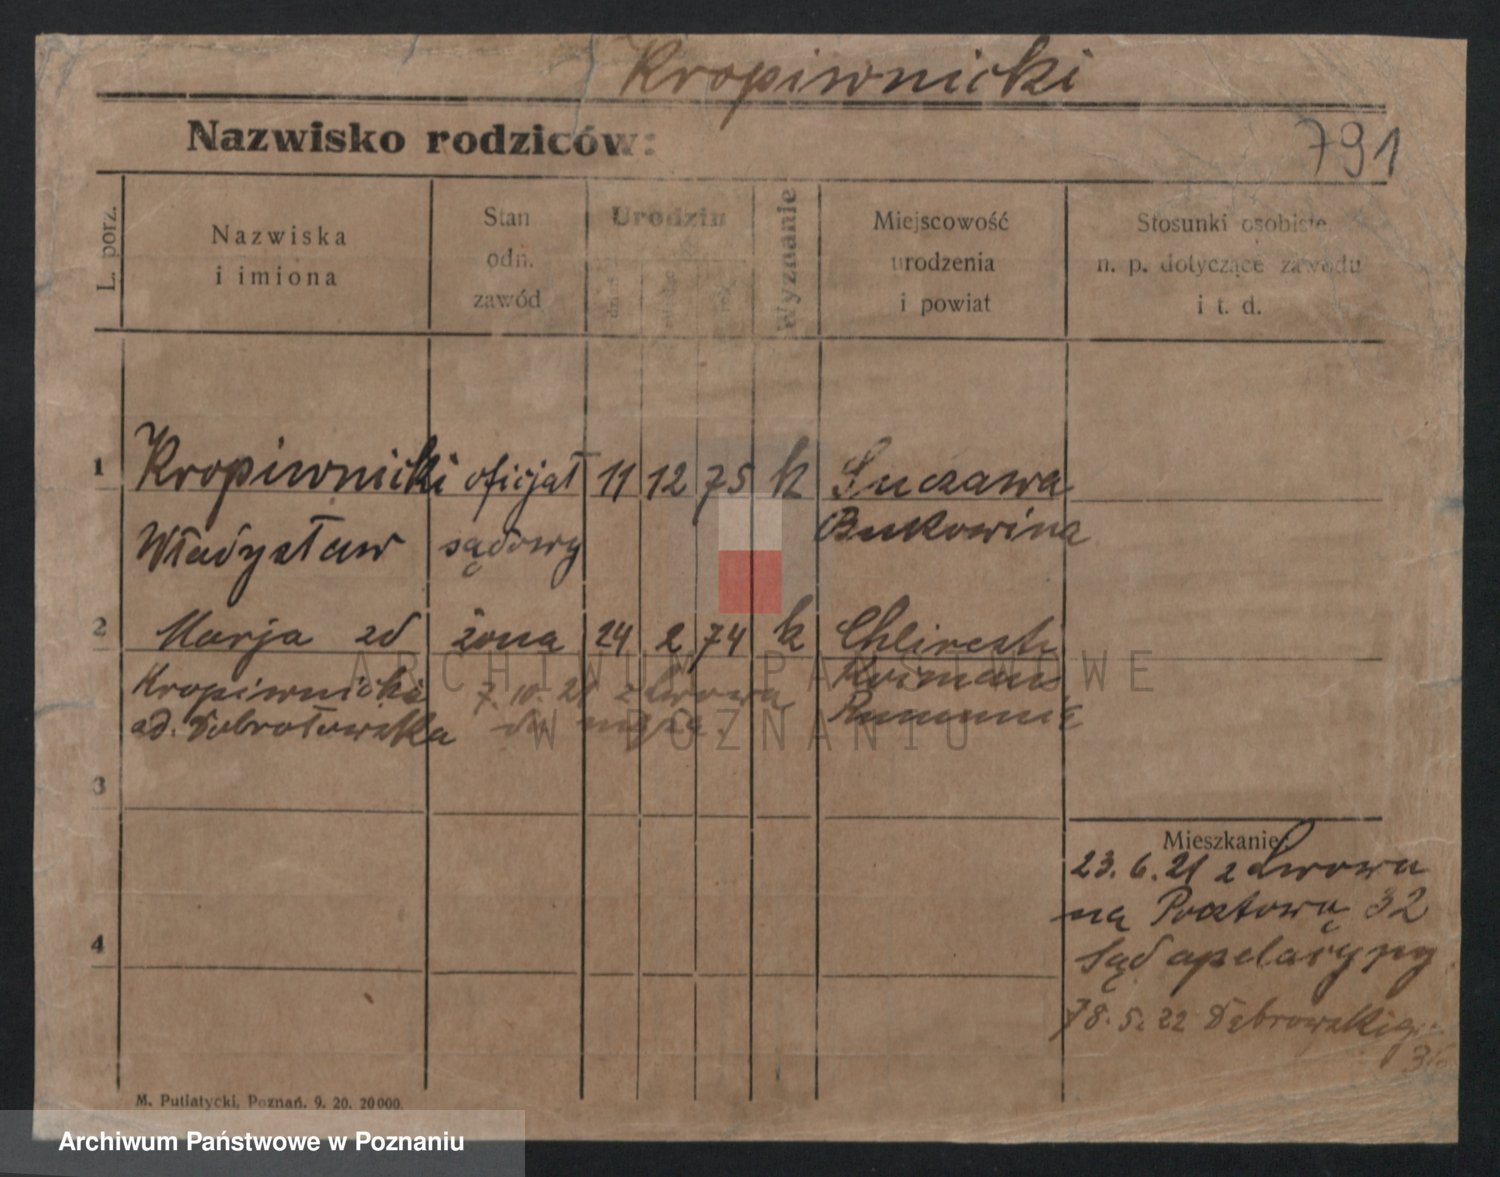 Kropiwnicki
Nazwisko rodziców:
791
L. porz.
Nazwiska
i imiona
Stan
odn.
zawód
Urodzin
dzień
rok
Wyznanie
Miejscowość
urodzenia
i powiat
Stosunki osobiste
n. p. dotyczące zawodu
i t. d.
1 Kropiwnicki oficjał 11 12 75 k Suczawa
Władysław sądowy Bukowina
2 Marja zd żona 24 2 74 k
Kropiwnicki 7.10.21 z Lwowa
do męża.
3
4
Mieszkanie:
23.6.21 z Lwowa
na Pocztową 32
Sąd apelacyjny
5.22 Dąbrowskiego
M. Putiatycki, Poznań. 9. 20. 20000.
ARCHIWUM PAŃSTWOWE
W POZNANIU
Archiwum Państwowe w Poznaniu